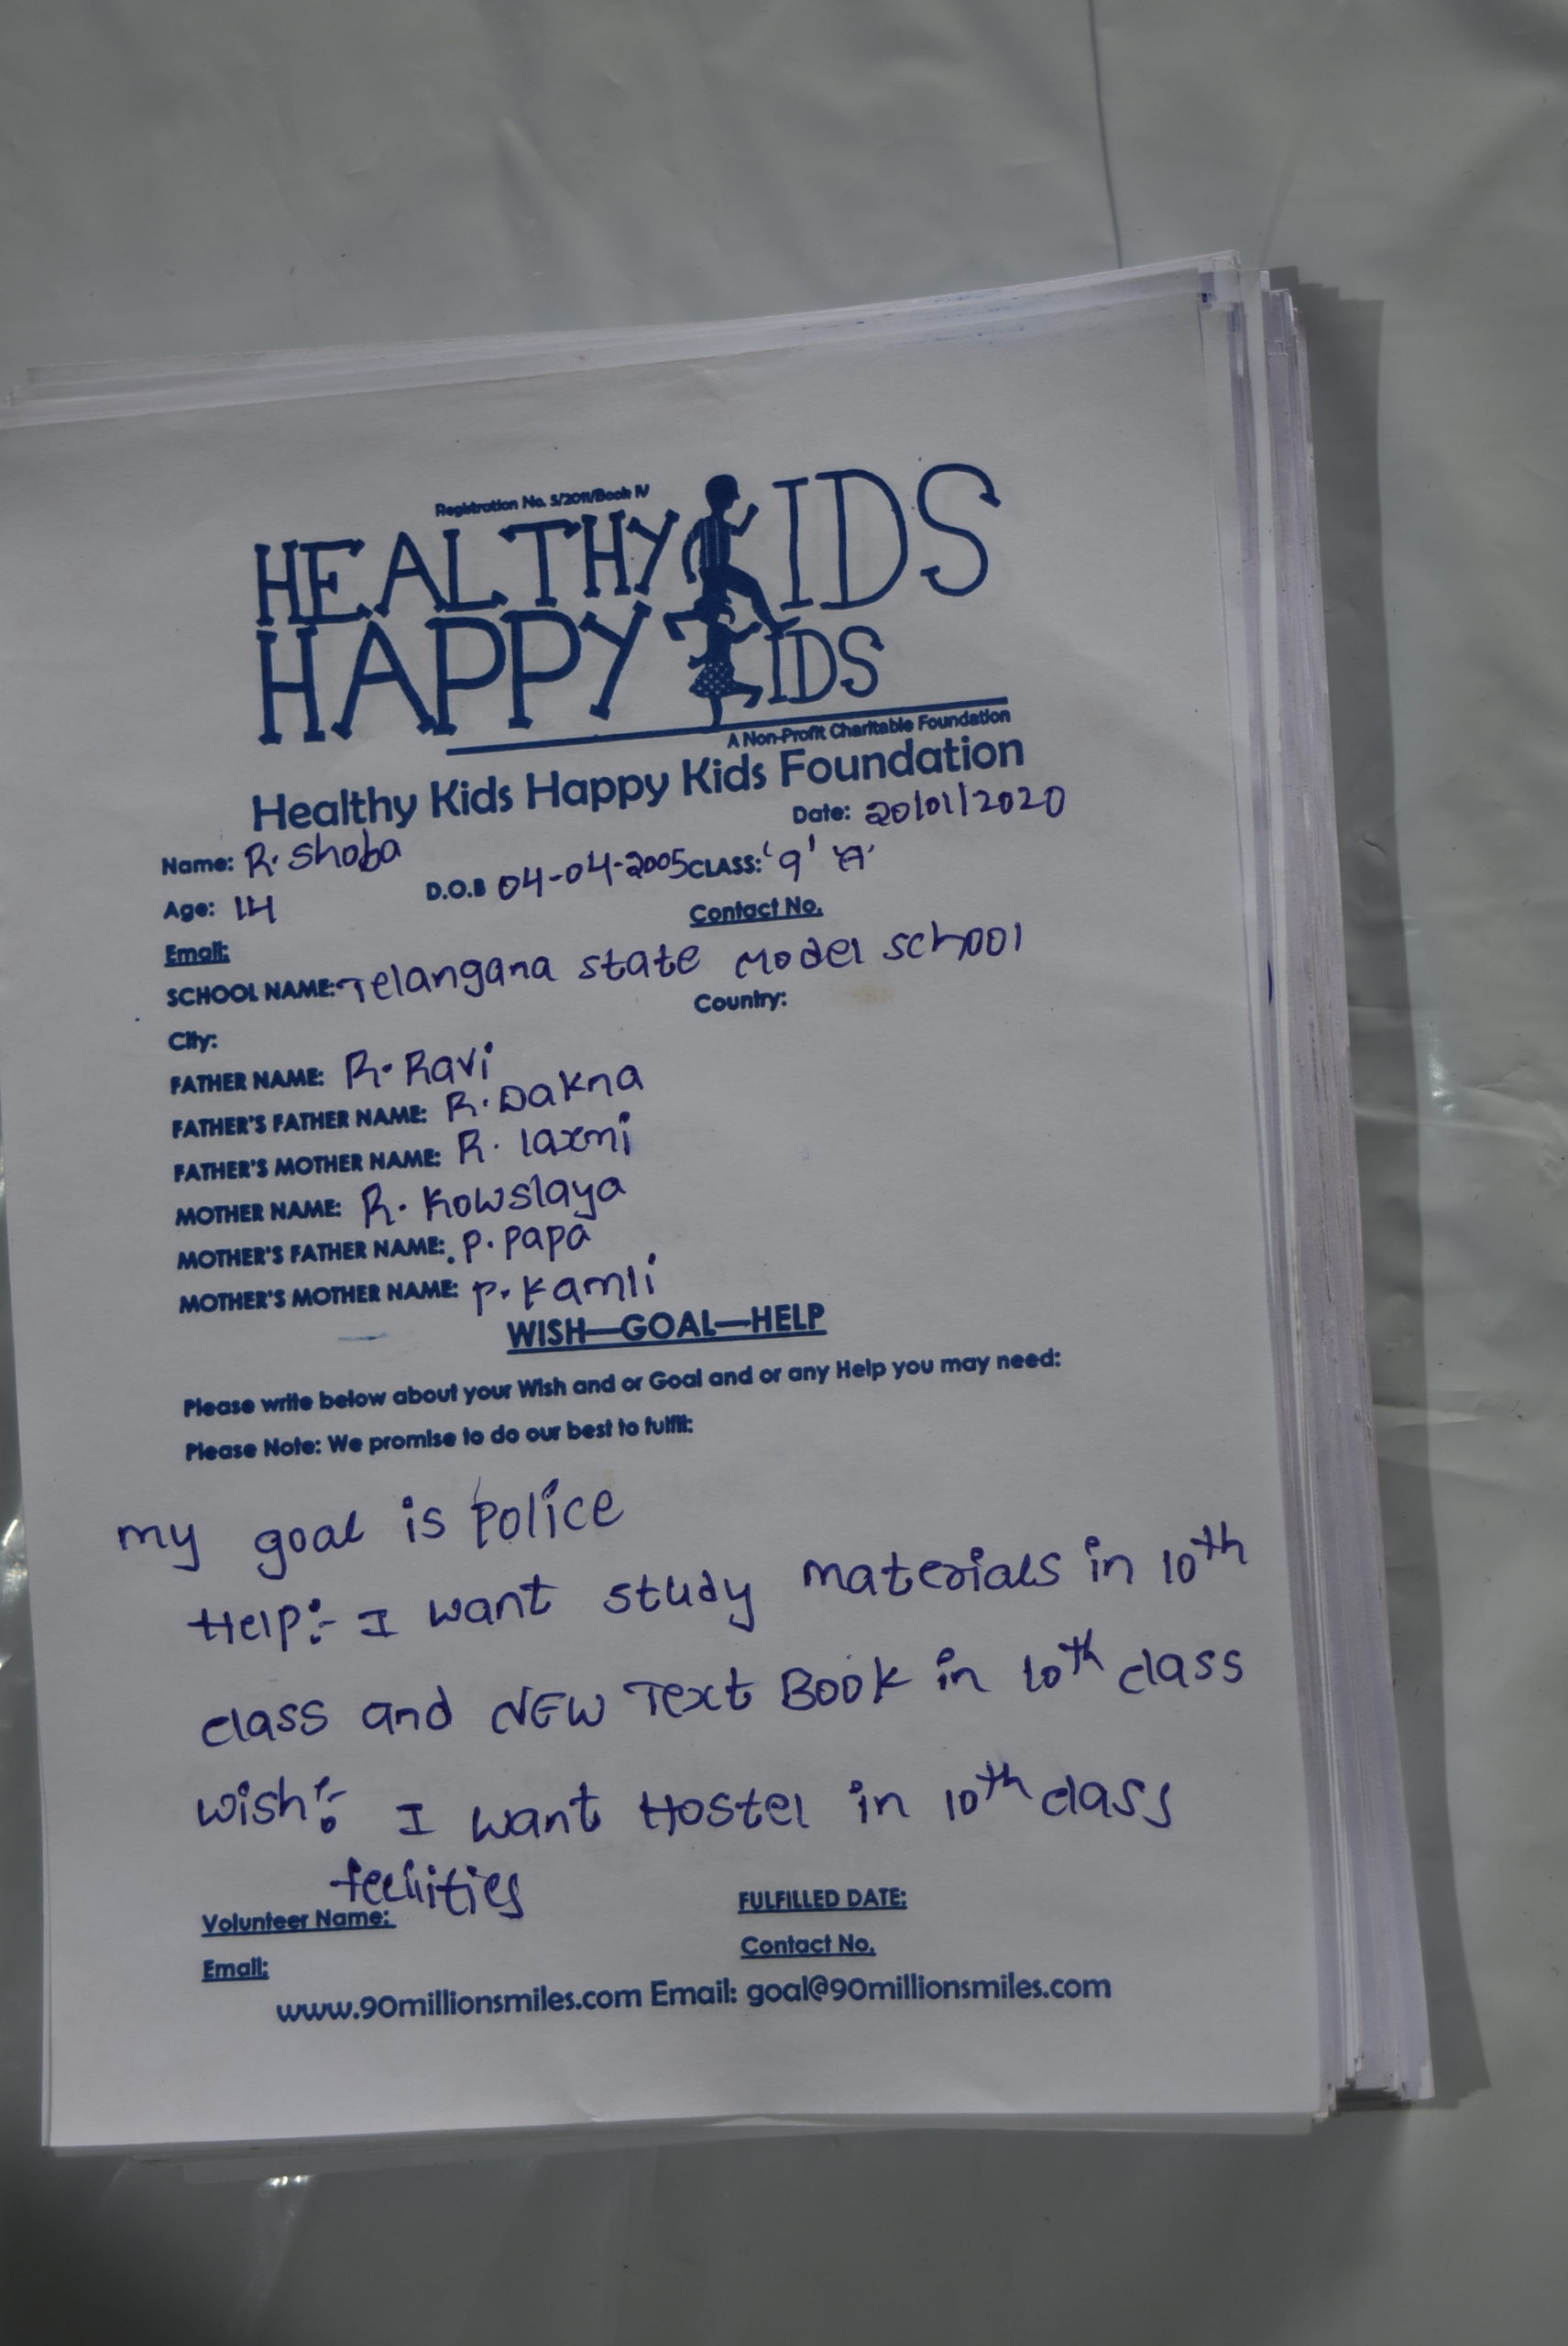 Registration No. 5/2011/Book IV
HEALTHY KIDS
HAPPY KIDS
A Non-Profit Charitable Foundation
Healthy Kids Happy Kids Foundation
Date: 20/01/2020
Name: R. Shoba
Age: 14 D.O.B 04-04-2005 CLASS: '9' 'A'
Email: Contact No.
SCHOOL NAME: Telangana state Model school
City: Country:
FATHER NAME: R. Ravi
FATHER'S FATHER NAME: R. Dakna
FATHER'S MOTHER NAME: R. laxmi
MOTHER NAME: R. Kowslaya
MOTHER'S FATHER NAME: P. Papa
MOTHER'S MOTHER NAME: P. Kamli
WISH—GOAL—HELP
Please write below about your Wish and or Goal and or any Help you may need:
Please Note: We promise to do our best to fulfil:
my goal is police
Help:- I want study materials in 10th
class and NEW Text Book in 10th class
wish:- I want Hostel in 10th class
fecilities
Volunteer Name: FULFILLED DATE:
Email: Contact No.
www.90millionsmiles.com Email: goal@90millionsmiles.com